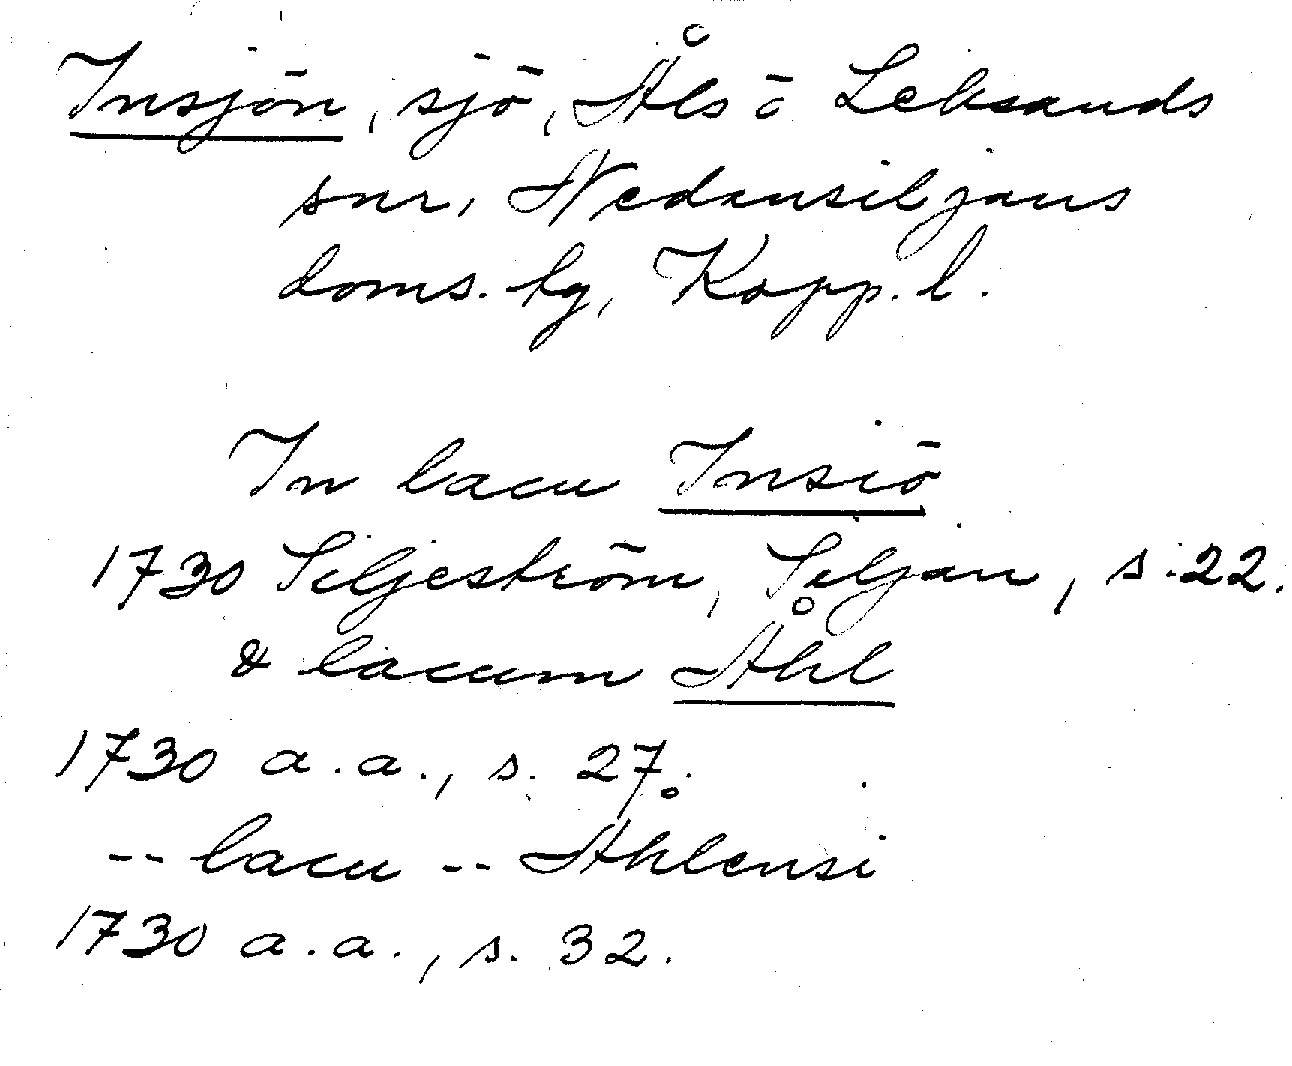 Insjön, sjö, Åls o Leksands
snr, Nedansiljans
doms. hg, Kopp. l.
In lacu Insiö
1730 Siljeström, Siljan, s. 22.
& lacum Åhl
1730 a.a., s. 27.
-- lacu -- Åhlensi
1730 a.a., s. 32.